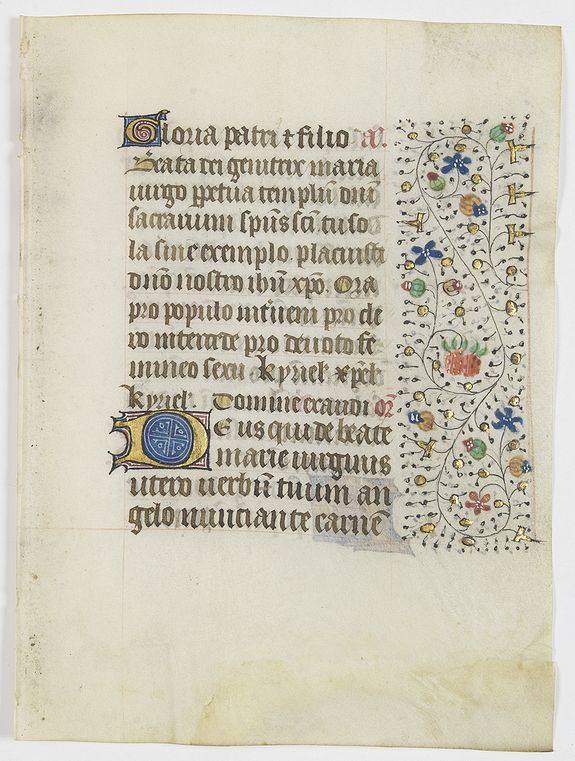 Gloria patri ⁊ filio añ.
Beata dei genitrix maria
uirgo ꝑpetua templũ dñi
sacrarium spũs scĩ. tu so
la sine exemplo. placuisti
dño nostro ihũ xp̃o. Ora
pro populo intẽueni pro cle
ro intercede pro deuoto fe
mineo sexu kyriel̃ xp̃el̃
kyriel̃. Domine exaudi or̃
Deus qui de beate
marie uirginis
utero uerbũ tuum an
gelo nunciante carnẽ